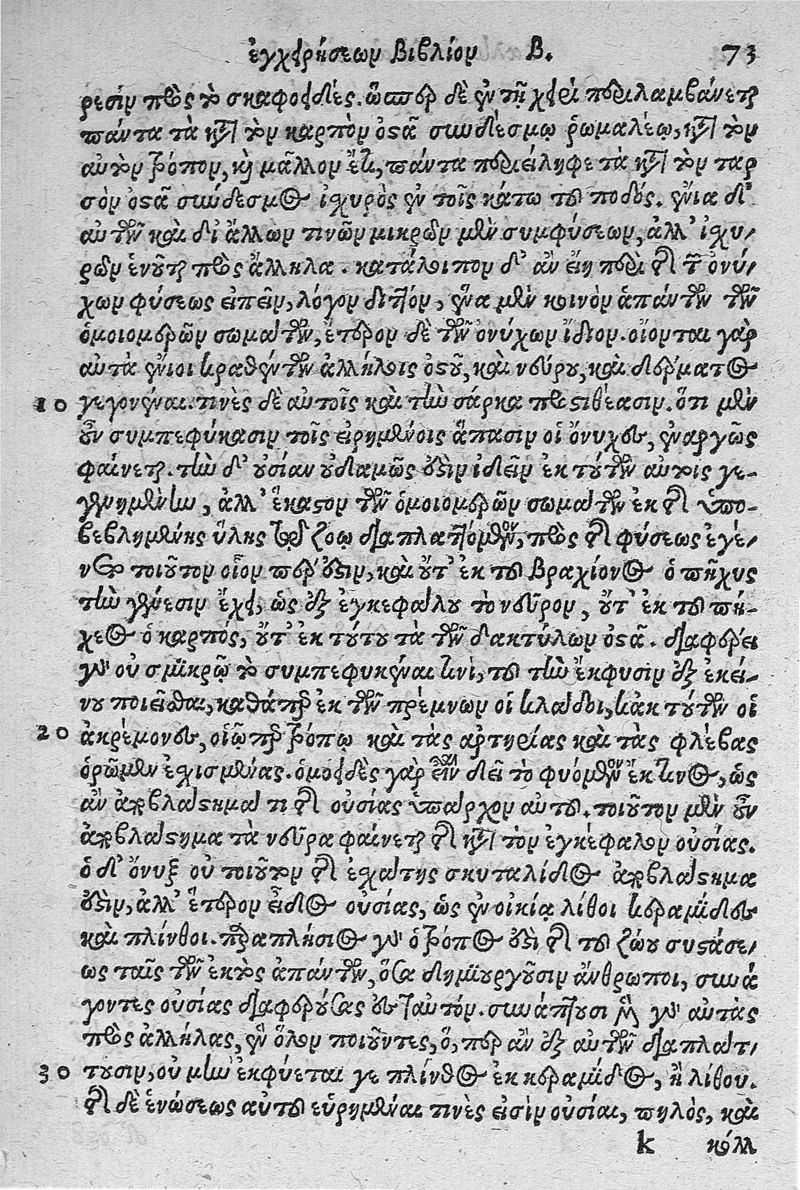 ἐγχειρήσεων Βιβλίον Β. 73
ρεσιν πρὸς τὸ σκαφοειδές. ὥσπερ δὲ ἐν τῇ χειρὶ περιλαμβάνεται
πάντα τὰ κατὰ τὸν καρπὸν ὀστᾶ συνδέσμῳ ῥωμαλέῳ, κατὰ τὸν
αὐτὸν τρόπον, καὶ μᾶλλον ἔτι, πάντα περιείληφε τὰ κατὰ τὸν ταρ
σὸν ὀστᾶ σύνδεσμος ἰχυρὸς ἐν τοῖς κάτω τοῦ ποδός. ἔνια δ'
αὐτῶν καὶ δι' ἄλλων τινῶν μικρῶν μὲν συμφύσεων, ἀλλ' ἰχυ-
ρῶν ἑνοῦται πρὸς ἄλληλα. κατάλοιπον δ' ἂν εἴη περὶ τῆς τῶν ὀνύ-
χων φύσεως εἰπεῖν, λόγον διττὸν, ἕνα μὲν κοινὸν ἁπάντων τῶν
ὁμοιομερῶν σωμάτων, ἕτερον δὲ τῶν ὀνύχων ἴδιον. οἴονται γὰρ
αὐτὰ ἔνιοι κραθέντων ἀλλήλοις ὀστοῦ, καὶ νεύρου, καὶ δέρματος
10 γεγονέναι. τινὲς δὲ αὐτοῖς καὶ τὴν σάρκα προστιθέασιν. ὅτι μὲν
οὖν συμπεφύκασιν τοῖς εἰρημένοις ἅπασιν οἱ ὄνυχες, ἐναργῶς
φαίνεται. τὴν δ' οὐσίαν οὐδαμῶς ἐστὶν ἰδεῖν ἐκ τούτων αὐτοῖς γε-
γενημένην, ἀλλ' ἕκαστον τῶν ὁμοιομερῶν σωμάτων ἐκ τῆς ὑπο-
βεβλημένης ὕλης τῷ ζώῳ διαπλαττόμενον, πρὸς τῆς φύσεως ἐγέ-
νετο τοιοῦτον οἷον πέρ ἐστιν, καὶ οὔτ' ἐκ τοῦ βραχίονος ὁ πῆχυς
τὴν γένεσιν ἔχει, ὡς ἐξ ἐγκεφάλου τὸ νεῦρον, οὔτ' ἐκ τοῦ πή-
χεος ὁ καρπὸς, οὔτ' ἐκ τούτου τὰ τῶν δακτύλων ὀστᾶ. διαφέρει
γὰρ οὐ σμικρῷ τὸ συμπεφυκέναι τινὶ, τοῦ τὴν ἔκφυσιν ἐξ ἐκεί-
νου ποιεῖσθαι, καθάπερ ἐκ τῶν πρέμνων οἱ κλάδοι, κἀκ τούτων οἱ
20 ἀκρέμονες, οἵῳπερ τρόπῳ καὶ τὰς ἀρτηρίας καὶ τὰς φλέβας
ὁρῶμεν ἐχισμένας. ὁμοειδὲς γὰρ εἶναι δεῖ τὸ φυόμενον ἔκ τινος, ὡς
ἂν ἀποβλάστημά τι τῆς οὐσίας ὑπάρχον αὐτοῦ. τοιοῦτον μὲν οὖν
ἀποβλάστημα τὰ νεῦρα φαίνεται τῆς κατὰ τὸν ἐγκέφαλον οὐσίας.
ὁ δ' ὄνυξ οὐ τοιοῦτον τῆς ἐχάτης σκυταλίδος ἀποβλάστημα
ἐστὶν, ἀλλ' ἕτερον εἶδος οὐσίας, ὡς ἐν οἰκίᾳ λίθοι κεραμίδες
καὶ πλίνθοι. παραπλήσιος γὰρ ὁ τρόπος ἐστὶ τῆς τοῦ ζώου συστάσε-
ως ταῖς τῶν ἐκτὸς ἁπάντων, ὅσα δημιουργοῦσιν ἄνθρωποι, συνά
γοντες οὐσίας διαφερούσας ἐς ταὐτόν. συνάπτουσι μὲν γὰρ αὐτὰς
πρὸς ἀλλήλας, ἓν ὅλον ποιοῦντες, ὅ, περ ἂν ἐξ αὐτῶν διαπλάτ-
30 τουσιν, οὐ μὴν ἐκφύεται γε πλίνθος ἐκ κεραμίδος, ἢ λίθου.
τῆς δὲ ἑνώσεως αὐτοῦ εὑρημέναι τινὲς εἰσὶν οὐσίαι, πηλὸς, καὶ
k κόλλ